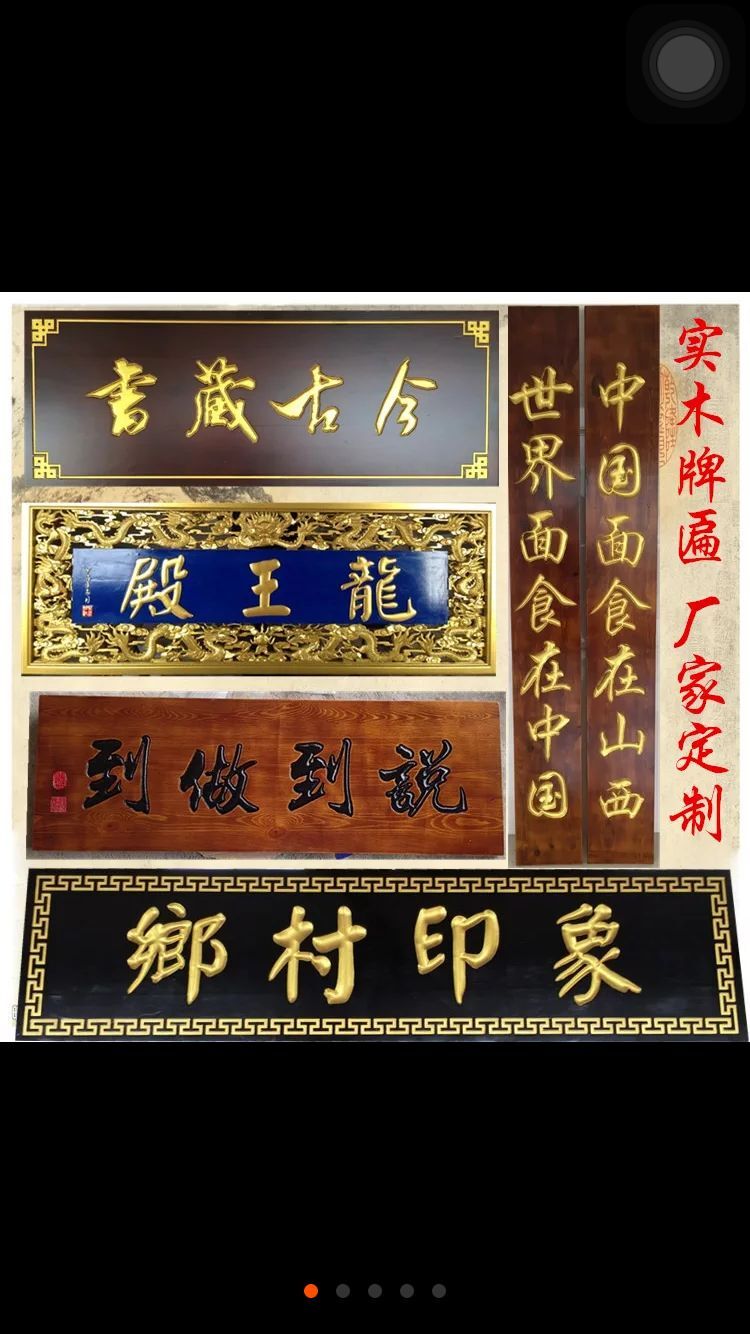 書藏古今
龍王殿
説到做到
世界面食在中国
中国面食在山西
实木牌匾 厂家定制
鄉村印象